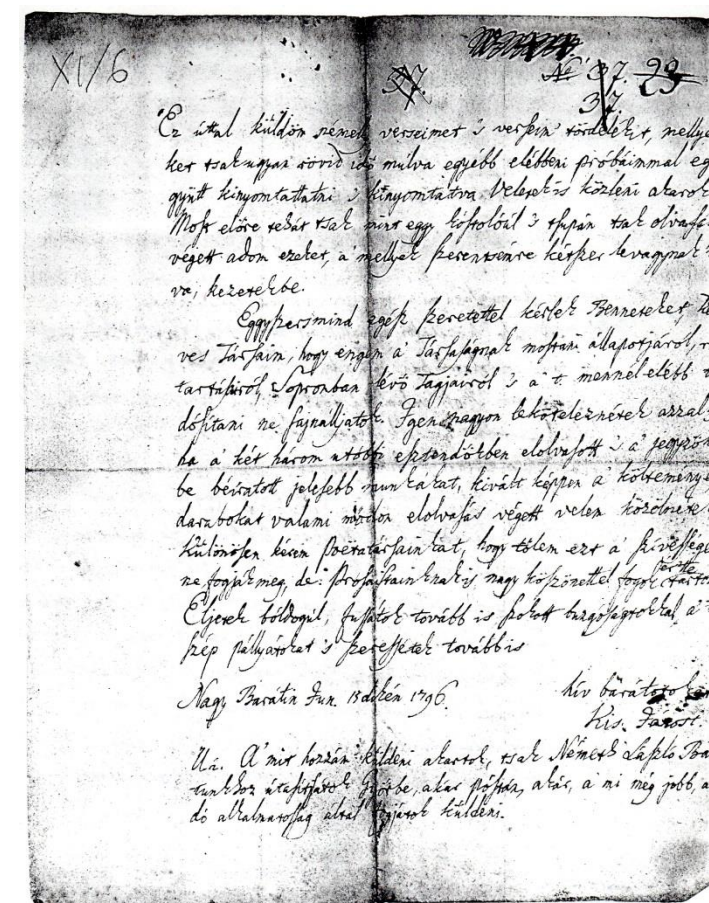 XI/6
37.
No 37. 29
37.
Ez úttal küldöm némely verseimet 's versem töredékit, mellye
ket tsakugyan rövid idő múlva egyébb elébbeni próbáimmal eg
gyütt kinyomtattatni 's kinyomtatva Veletek is közleni akarok
Most előre tehát tsak mint egy kóstolóúl 's tsupán tsak olvasás
végett adom ezeket, a' mellyek szerentsémre kétszer levagynak
va, kezetekbe.
Eggyszersmind egész szeretettel kérlek Benneteket, Ke
ves Társaim, hogy engem a' Társaságnak mostani állapotjáról,
Sopronban lévő Tagjairól 's a' t. mennél elébb
dósítani ne sajnálljatok. Igen nagyon leköteleznétek azzal
ha a' két három utóbbi esztendőkben elolvasott 's a' jegyzőkön
be béíratott jelesebb munkákat, kivált képpen a' költeménye
darabokat valami módon elolvasás végett velem közölnétek
Különösen kérem Poétatársainkat, hogy tőlem ezt a' szívessége
ne fogják meg, de Prosaistáinknak is nagy köszönettel fogok
érte tartoz
Éljetek bóldogúl, fussátok tovább is szokott buzgóságtokkal a'
szép pállyátokat 's szeressétek tovább is
Nagy Barátin Jun. 15dikén 1796.
hív barátotokat
Kis János.
Ui. A' mit hozzám küldeni akartok, tsak Németh László Ba
tunkhoz útasítsátok Győrbe, akár póstán, akár, a' mi még jobb, a
dó alkalmatosság által fogjátok küldeni.